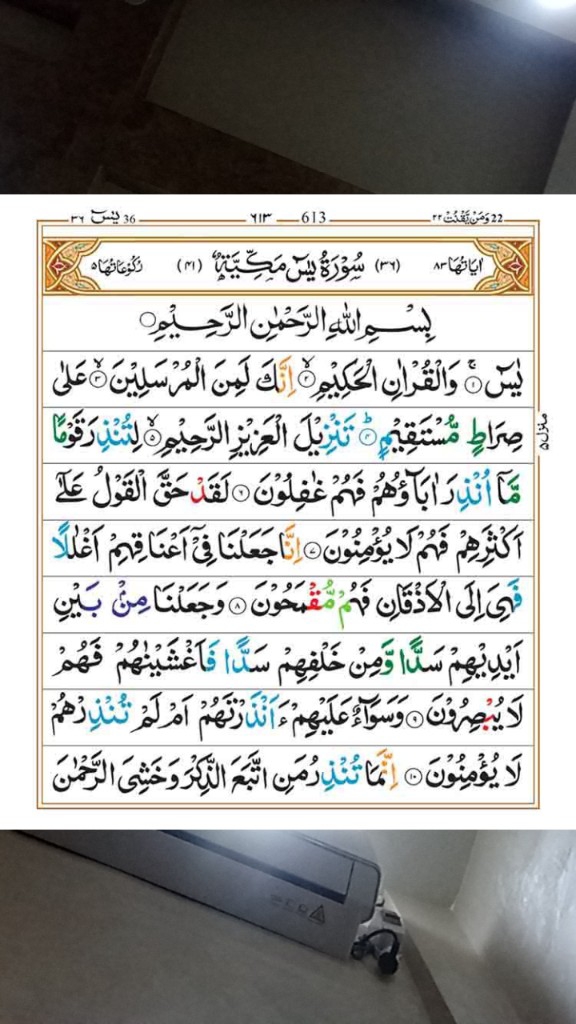 22 وَمَنْ يَّقْنُتْ ٢٢ 613 ٦١٣ 36 يٰسٓ ٣٦
اٰيَاتُهَا ٨٣ (٣٦) سُوْرَةُ يٰسٓ مَكِّيَّةٌ (٤١) رُكُوْعَاتُهَا ٥
بِسْمِ اللّٰهِ الرَّحْمٰنِ الرَّحِيْمِ
يٰسٓ ۚ ١ وَالْقُرْاٰنِ الْحَكِيْمِ ۙ ٢ اِنَّكَ لَمِنَ الْمُرْسَلِيْنَ ۙ ٣ عَلٰى
صِرَاطٍ مُّسْتَقِيْمٍ ؕ ٤ تَنْزِيْلَ الْعَزِيْزِ الرَّحِيْمِ ۙ ٥ لِتُنْذِرَ قَوْمًا
مَّاۤ اُنْذِرَ اٰبَآؤُهُمْ فَهُمْ غٰفِلُوْنَ ٦ لَقَدْ حَقَّ الْقَوْلُ عَلٰٓى
اَكْثَرِهِمْ فَهُمْ لَا يُؤْمِنُوْنَ ٧ اِنَّا جَعَلْنَا فِيْۤ اَعْنَاقِهِمْ اَغْلٰلًا
فَهِيَ اِلَى الْاَذْقَانِ فَهُمْ مُّقْمَحُوْنَ ٨ وَجَعَلْنَا مِنْۢ بَيْنِ
اَيْدِيْهِمْ سَدًّا وَّمِنْ خَلْفِهِمْ سَدًّا فَاَغْشَيْنٰهُمْ فَهُمْ
لَا يُبْصِرُوْنَ ٩ وَسَوَآءٌ عَلَيْهِمْ ءَاَنْذَرْتَهُمْ اَمْ لَمْ تُنْذِرْهُمْ
لَا يُؤْمِنُوْنَ ١٠ اِنَّمَا تُنْذِرُ مَنِ اتَّبَعَ الذِّكْرَ وَخَشِيَ الرَّحْمٰنَ
منزل ٥